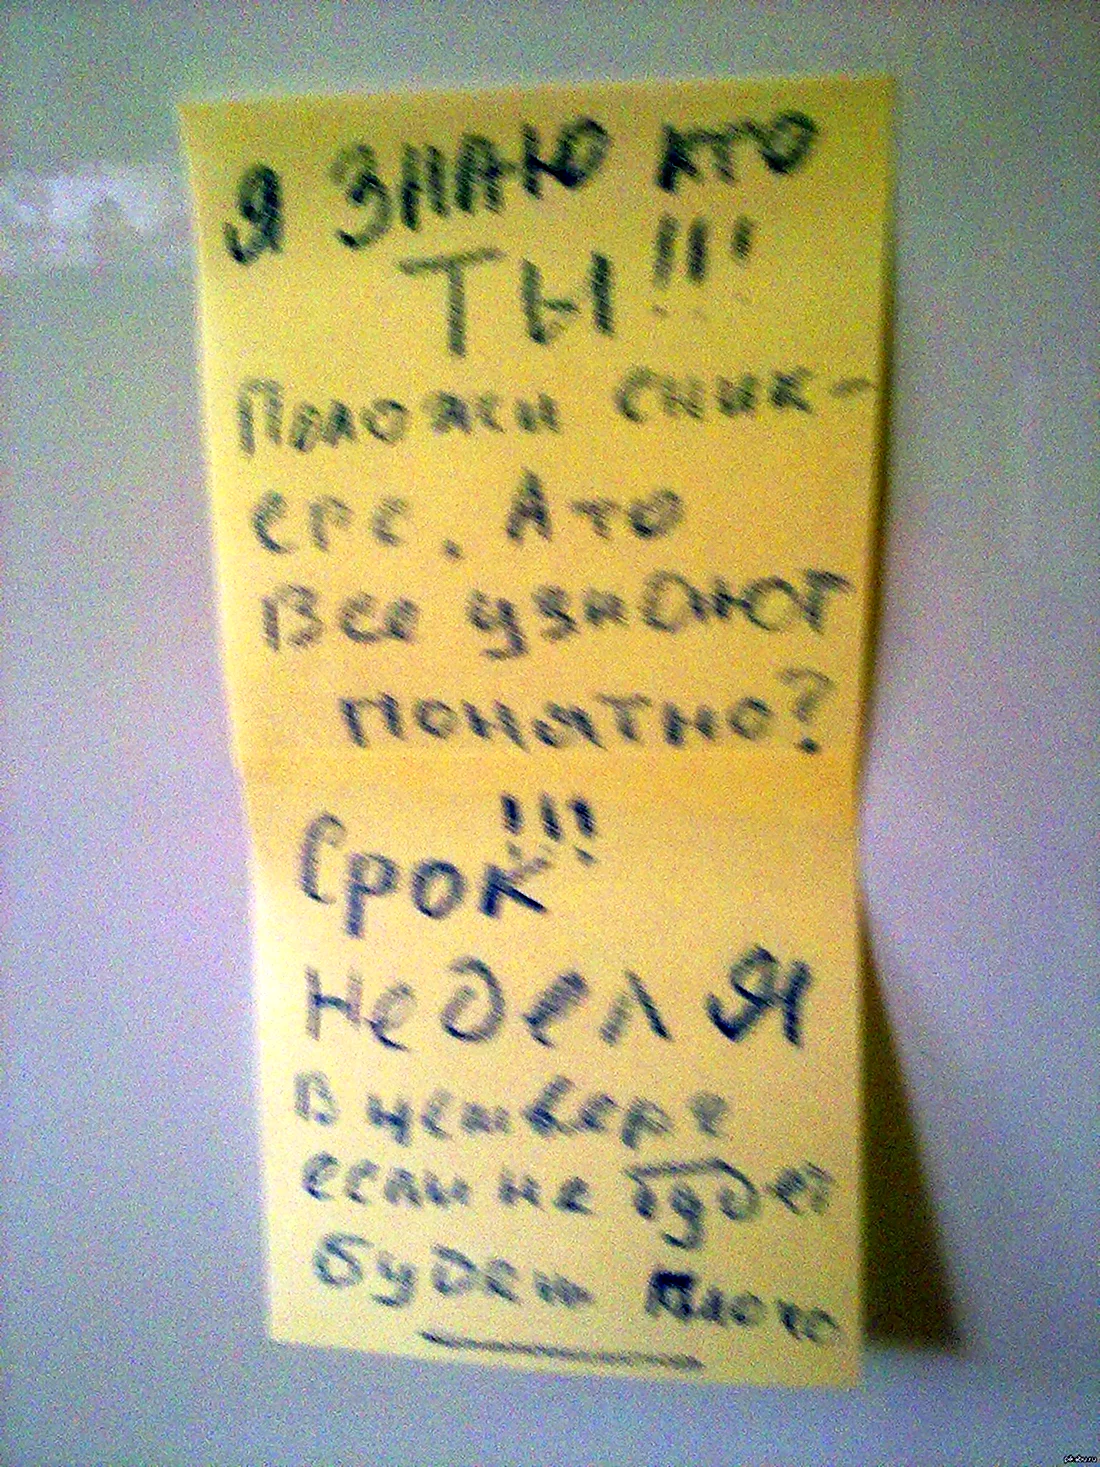 Я ЗНАЮ КТО
ТЫ!!!
Положи сник-
ерс. А то
Все узнают
понятно?
!!!
Срок
неделя
В четверг
если не будет
будет плохо
pikabu.ru